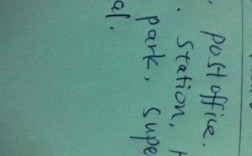 , post office.
. station, 
park, supe
al.